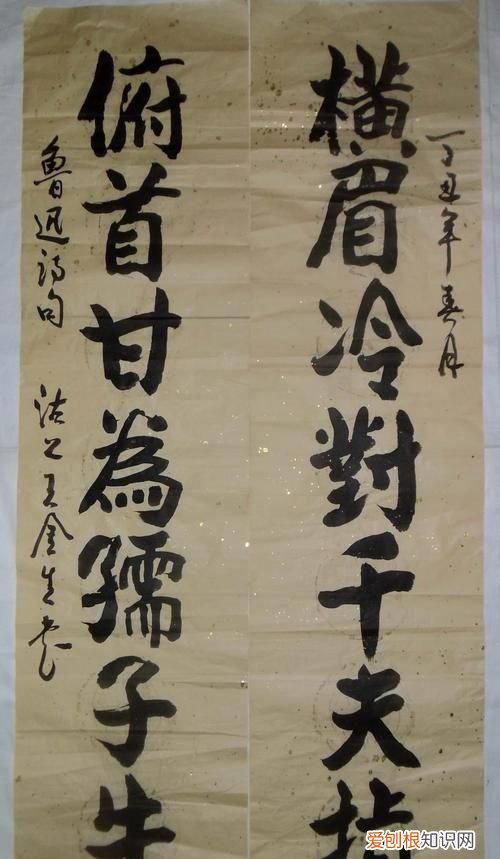 丁丑年春月
横眉冷對千夫指
俯首甘為孺子牛
魯迅詩句 王金生書
爱刨根知识网